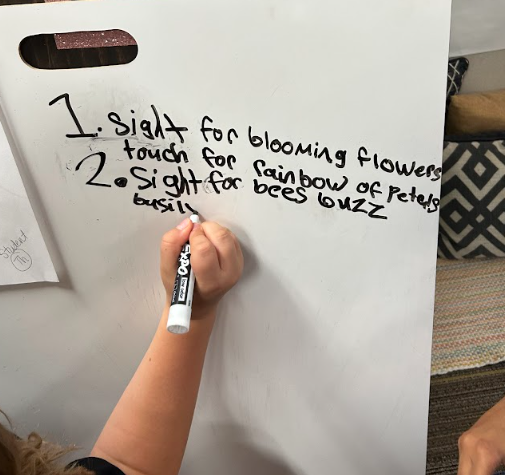 1. Sight for blooming flowers
touch for rainbow of petels
2. Sight for bees buzz
busily
EXPO
Student